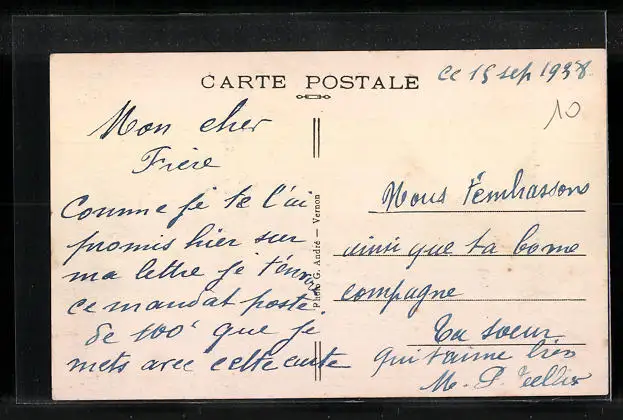 CARTE POSTALE
ce 15 sep 1938.
10
Mon cher
Frère
Comme je te l'ai
promis hier sur
ma lettre je t'envoi
ce mandat poste.
de 100f que je
mets avec cette carte
Photo G. André — Vernon
Nous t'embrassons
ainsi que ta bonne
compagne
Ta soeur
qui t'aime bien
M. P. Tellier